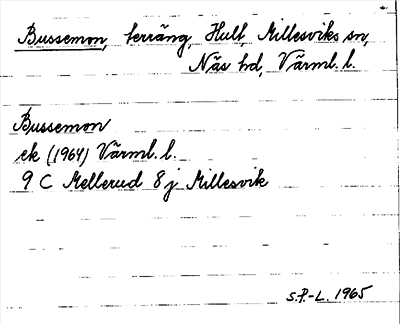 Bussemon, terräng, Hult, Millesviks sn,
Näs hd, Värml. l.
Bussemon
ek (1964) Värml. l.
9 C Mellerud 8 j Millesvik
S.P.-L. 1965